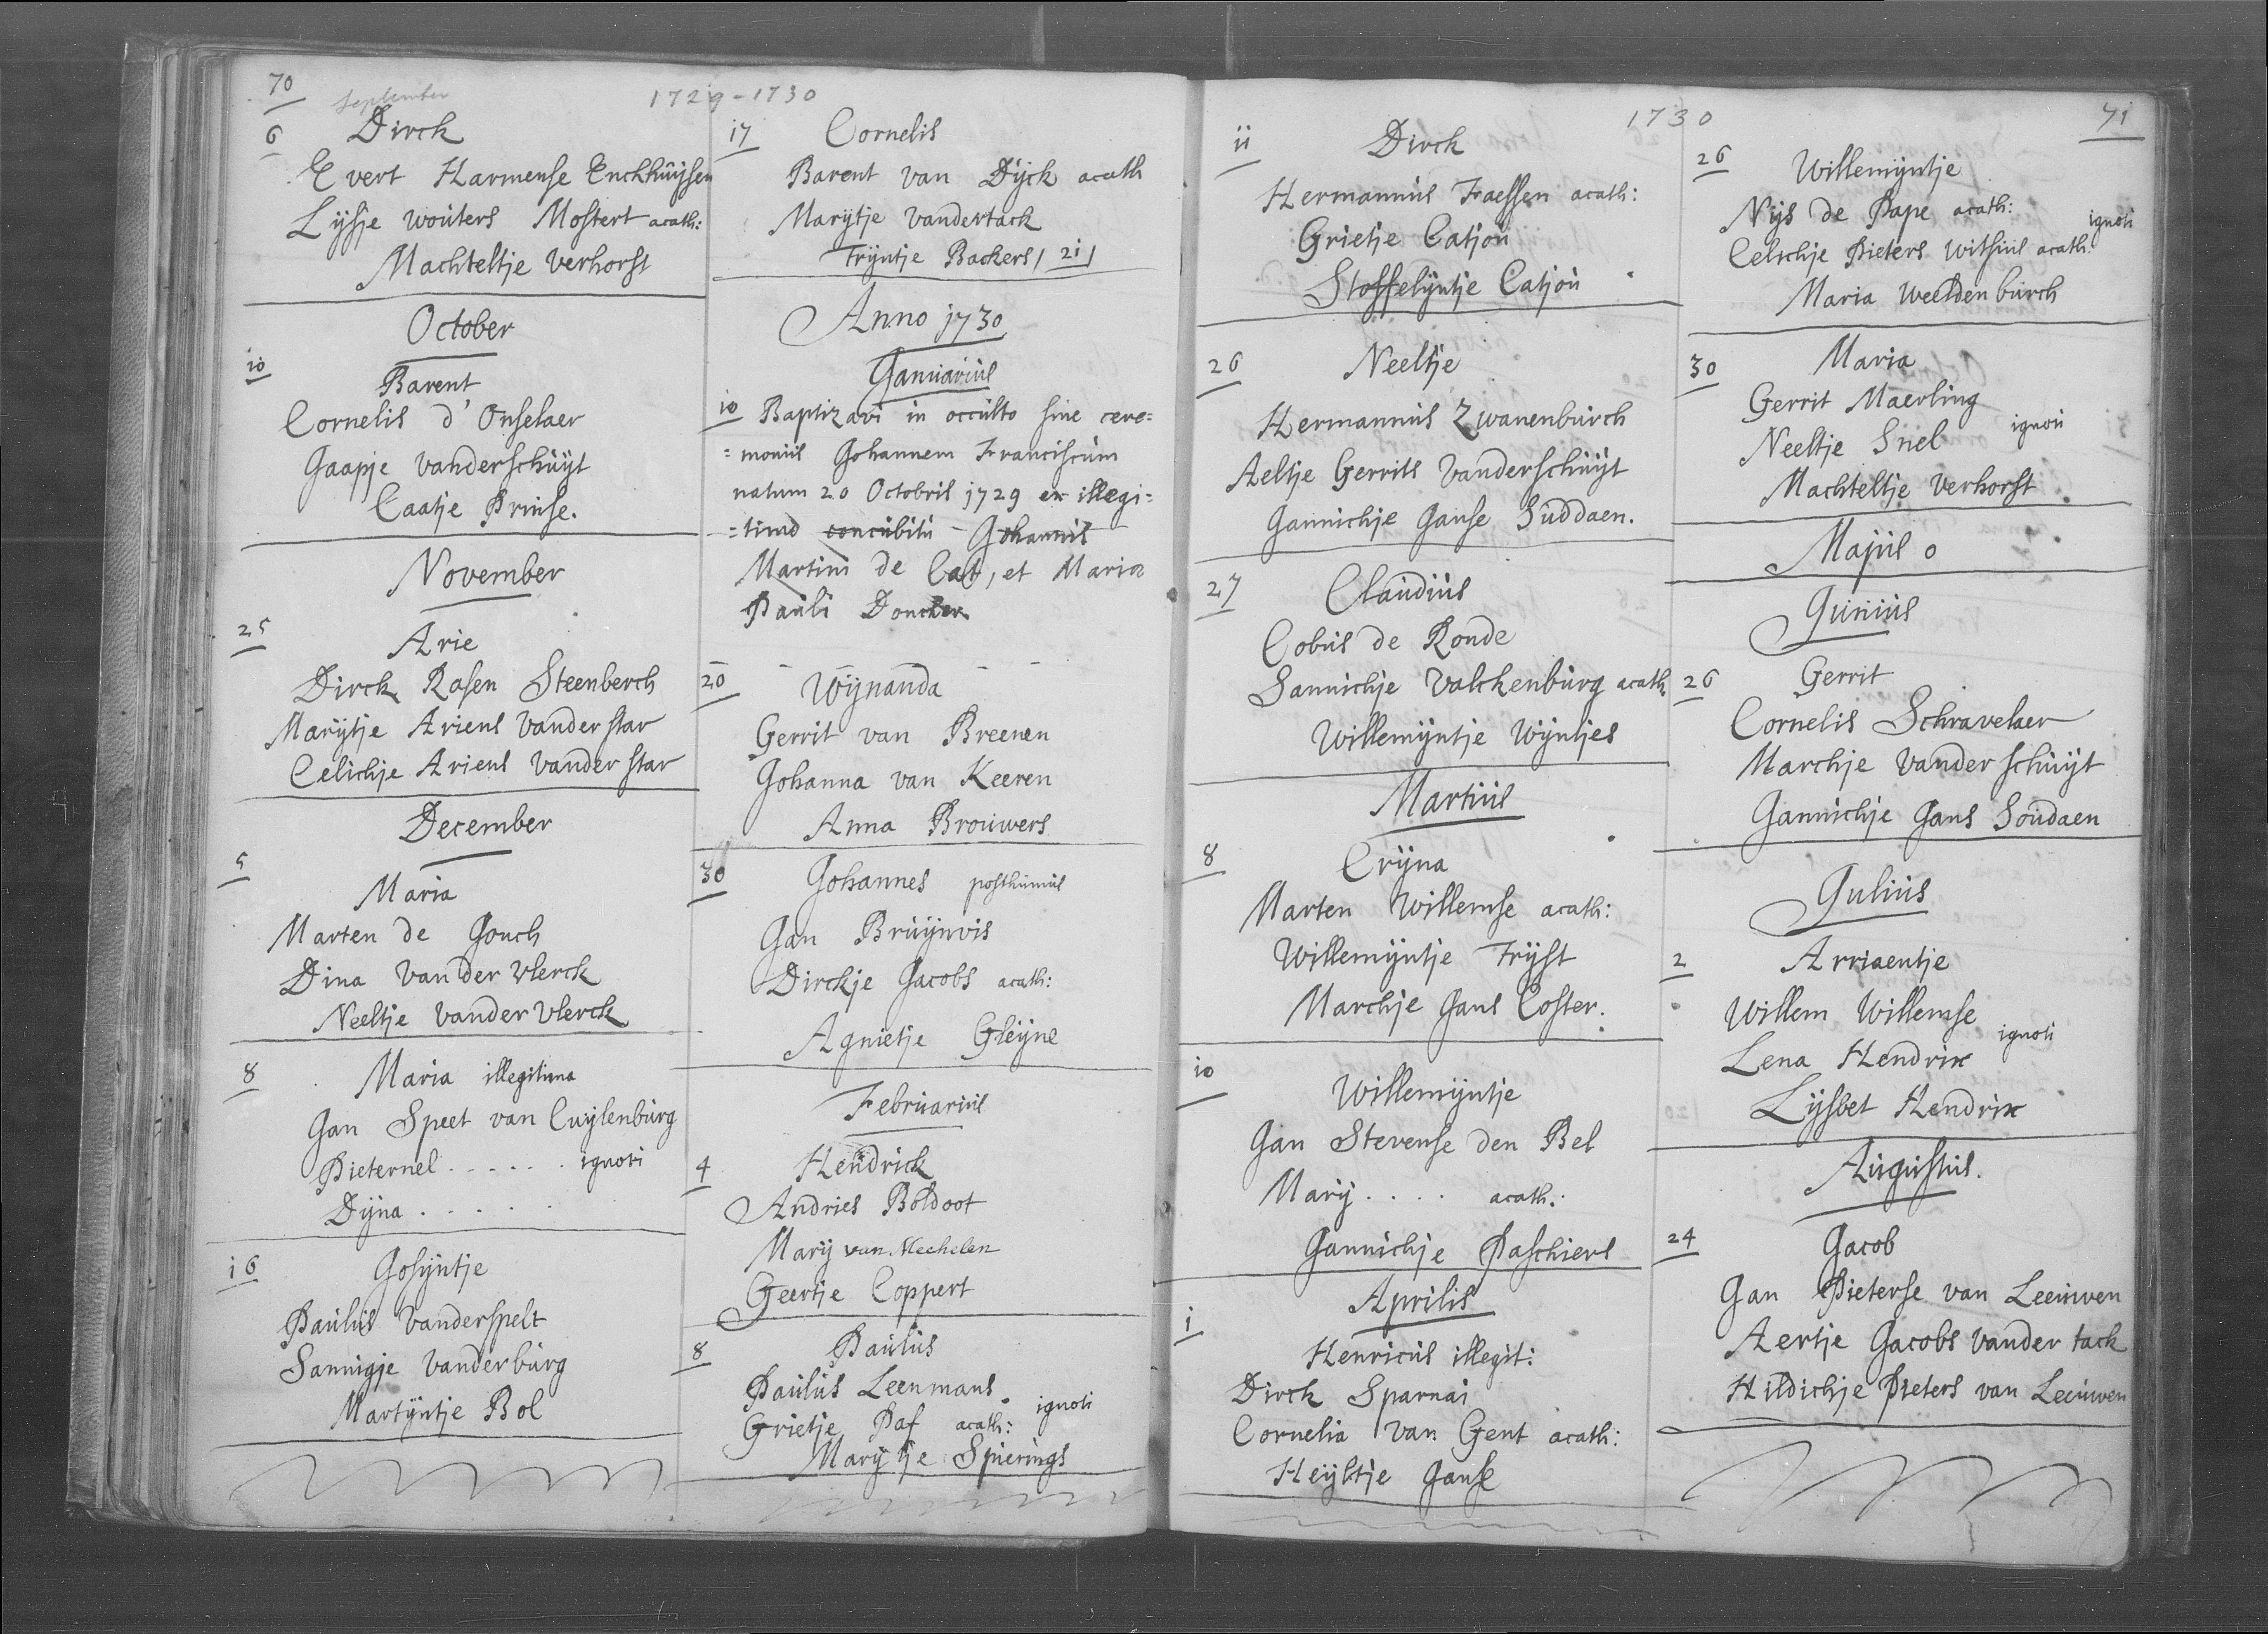 70
September
1729-1730
6
Dirck
Evert Harmense Enckhuijsen
Lijsje wouters Mostert acath:
Machteltje verhorst
October
10
Barent
Cornelis d'Onselaer
Jaapje vanderschuijt
Caatje Prinse.
November
25
Arie
Dirck Rasen Steenberch
Marijtje Ariens vander star
Celichje Ariens vander star
December
5
Maria
Marten de Jonch
Dina vander vlerck
Neeltje vander vlerck
8
Maria illegitima
Jan Speet van Cuijlenburg
Pieternel . . . . . ignoti
Dijna . . . . .
16
Josijntje
Paulus vanderspelt
Sannigje vanderburg
Martijntje Bol
17
Cornelis
Barent van Dijck acath
Marijtje vandertack
Trijntje Backers / 21 /
Anno 1730
Januarius
10 Baptizavi in occulto sine cere=
=moniis Johannem Franciscum
natum 20 Octobris 1729 ex illegi=
=timo concubitu - Johannis
Martini de Cat, et Maria
Pauli Doncker
20
Wijnanda
Gerrit van Breenen
Johanna van Keeren
Anna Brouwers
30
Johannes posthumus
Jan Bruijnvis
Dirckje Jacobs acath:
Agnietje Gleijne
Februarius
4
Hendrick
Andries Boldoot
Marij van Mechelen
Geertje Coppert
8
Paulus
Paulus Leenmans
ignoti
Grietje Paf acath:
Marijtje Spierings
1730
11
Dirck
Hermannus Fraessen acath:
Grietje Catjou
Stoffelijntje Catjou
26
Neeltje
Hermannus Zwanenburch
Aeltje Gerrits vanderschuijt
Jannichje Janse Suddaen.
27
Claudius
Cobus de Ronde
Sannichje valckenburg acath.
Willemijntje Wijntjes
Martius
8
Crijna
Marten Willemse acath:
Willemijntje Trijst
Marchje Jans Coster.
10
Willemijntje
Jan Stevense den Bel
Marij . . . . acath:
Jannichje Paschiers
Aprilis
1
Henricus illegit:
Dirck Sparnai
Cornelia van Gent acath:
Heijltje Janse
71
26
Willemijntje
Nijs de Pape acath:
ignoti
Celichje Pieters Withuis acath:
Maria weeldenburch
30
Maria
Gerrit Maerling
ignoti
Neeltje Snel
Machteltje verhorst
Majus 0
Junius
26
Gerrit
Cornelis Schravelaer
Marchje vander schuijt
Jannichje Jans Soudaen
Julius
2
Arriaentje
Willem Willemse
ignoti
Lena Hendrix
Lijsbet Hendrix
Augustus.
24
Jacob
Jan Pieterse van Leeuwen
Aertje Jacobs vander tack
Hildichje Pieters van Leeuwen